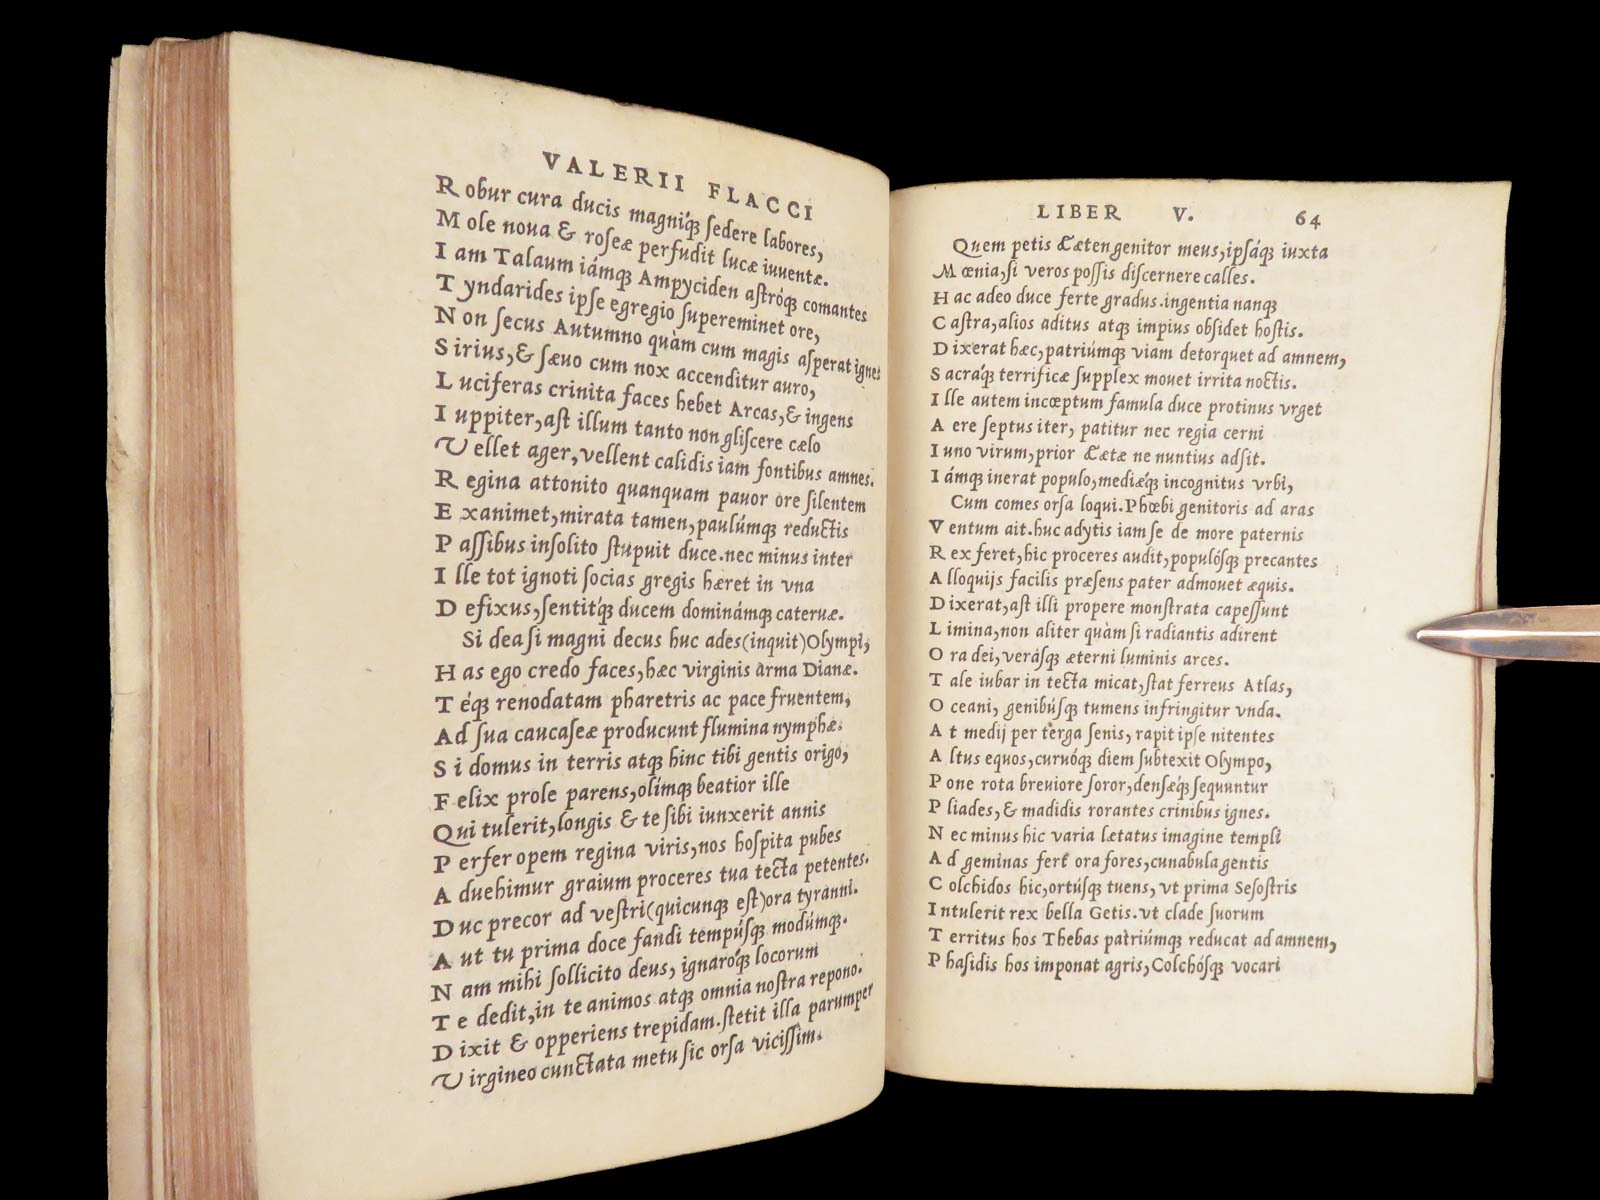 VALERII FLACCI
Robur cura ducis magniq́ꝫ ſedere labores,
Mole noua & roſeæ perfudit lucæ iuuentæ.
Iam Talaum iámqꝫ Ampyciden aſtróqꝫ comantes
Tyndarides ipſe egregio ſupereminet ore,
Non ſecus Autumno quàm cum magis aſperat ignes
Sirius, & ſæuo cum nox accenditur auro,
Luciferas crinita faces hebet Arcas, & ingens
Iuppiter, aſt illum tanto non gliſcere cælo
Vellet ager, vellent calidis iam fontibus amnes.
Regina attonito quanquam pauor ore ſilentem
Exanimet, mirata tamen, paulúmqꝫ reductis
Paſſibus inſolito ſtupuit duce. nec minus inter
Ille tot ignoti ſocias gregis hæret in vna
Defixus, ſentitq́ꝫ ducem dominámqꝫ cateruæ.
Si dea ſi magni decus huc ades (inquit) Olympi,
Has ego credo faces, hæc virginis arma Dianæ.
Téqꝫ renodatam pharetris ac pace fruentem,
Ad ſua caucaſeæ producunt flumina nymphæ.
Si domus in terris atqꝫ hinc tibi gentis origo,
Felix prole parens, olímqꝫ beatior ille
Qui tulerit, longis & te ſibi iunxerit annis
Perfer opem regina viris, nos hoſpita pubes
Aduehimur graium proceres tua tecta petentes.
Duc precor ad veſtri (quicunqꝫ eſt) ora tyranni.
Aut tu prima doce fandi tempúſqꝫ modúmqꝫ.
Nam mihi ſollicito deus, ignaróqꝫ locorum
Te dedit, in te animos atqꝫ omnia noſtra repono.
Dixit & opperiens trepidam. ſtetit illa parumper
Virgineo cunctata metu ſic orſa viciſſim.
LIBER V. 64
Quem petis Ææten genitor meus, ipſáqꝫ iuxta
Mœnia, ſi veros poſſis diſcernere calles.
Hac adeo duce ferte gradus. ingentia nanqꝫ
Caſtra, alios aditus atqꝫ impius obſidet hoſtis.
Dixerat hæc, patriúmqꝫ viam detorquet ad amnem,
Sacráqꝫ terrificæ ſupplex mouet irrita noctis.
Ille autem incœptum famula duce protinus vrget
Aere ſeptus iter, patitur nec regia cerni
Iuno virum, prior Æætæ ne nuntius adſit.
Iámqꝫ inerat populo, mediǽqꝫ incognitus vrbi,
Cum comes orſa loqui. Phœbi genitoris ad aras
Ventum ait. huc adytis iam ſe de more paternis
Rex feret, hic proceres audit, populóſqꝫ precantes
Alloquijs facilis præſens pater admouet æquis.
Dixerat, aſt illi propere monſtrata capeſſunt
Limina, non aliter quàm ſi radiantis adirent
Ora dei, veráſqꝫ æterni luminis arces.
Tale iubar in tecta micat, ſtat ferreus Atlas,
Oceani, genibúſqꝫ tumens infringitur vnda.
At medij per terga ſenis, rapit ipſe nitentes
Altus equos, curuóqꝫ diem ſubtexit Olympo,
Pone rota breuiore ſoror, denſǽqꝫ ſequuntur
Pliades, & madidis rorantes crinibus ignes.
Nec minus hic varia lætatus imagine templi
Ad geminas fert ora fores, cunabula gentis
Colchidos hic, ortúſqꝫ tuens, vt prima Seſoſtris
Intulerit rex bella Getis. vt clade ſuorum
Territus hos Thebas patriúmqꝫ reducat ad amnem,
Phaſidis hos imponat agris, Colchóſqꝫ vocari